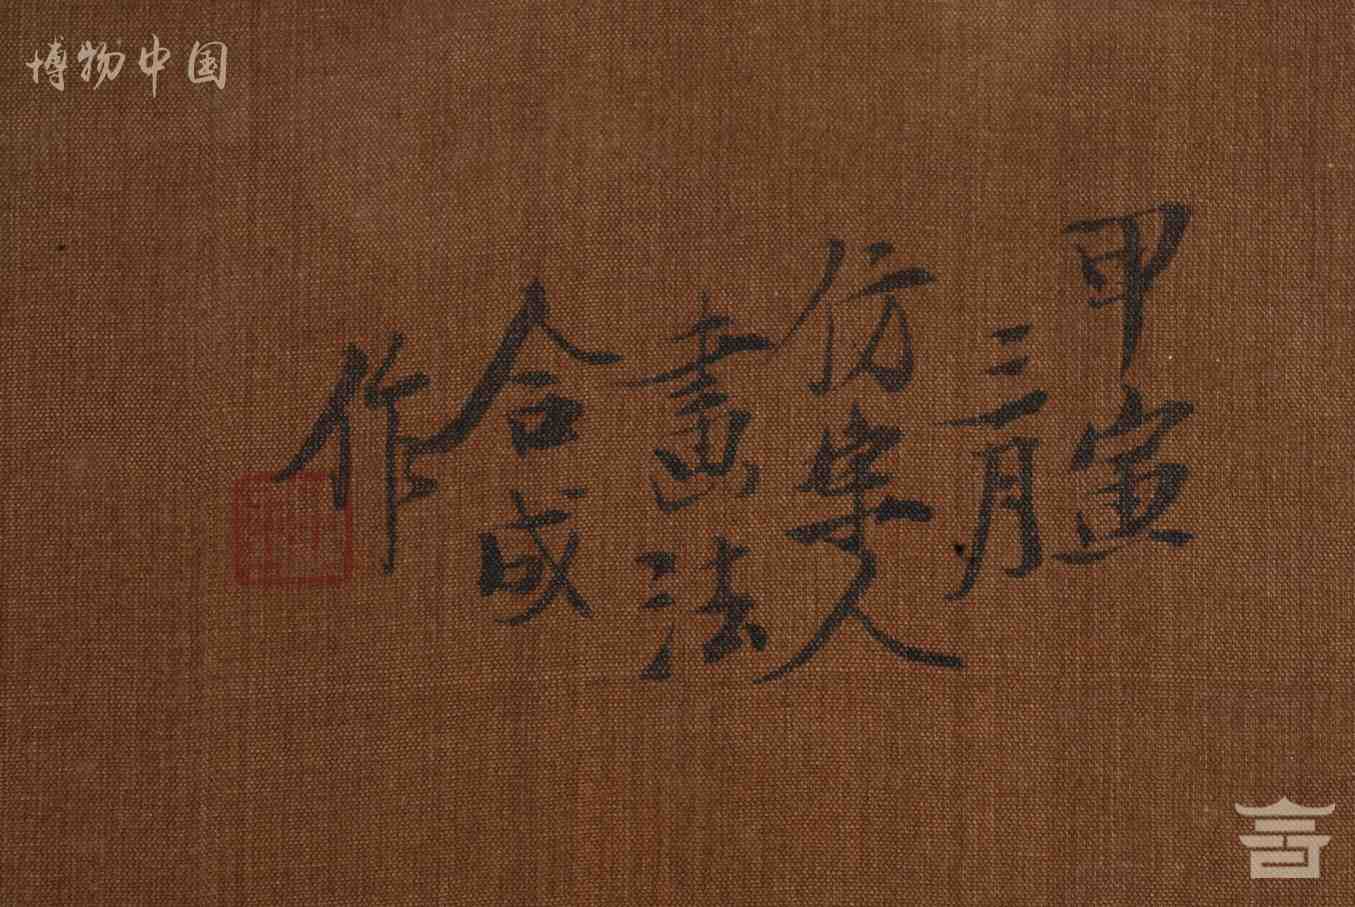 博物中国
甲寅
三月
仿宋人
畫法
合成
作